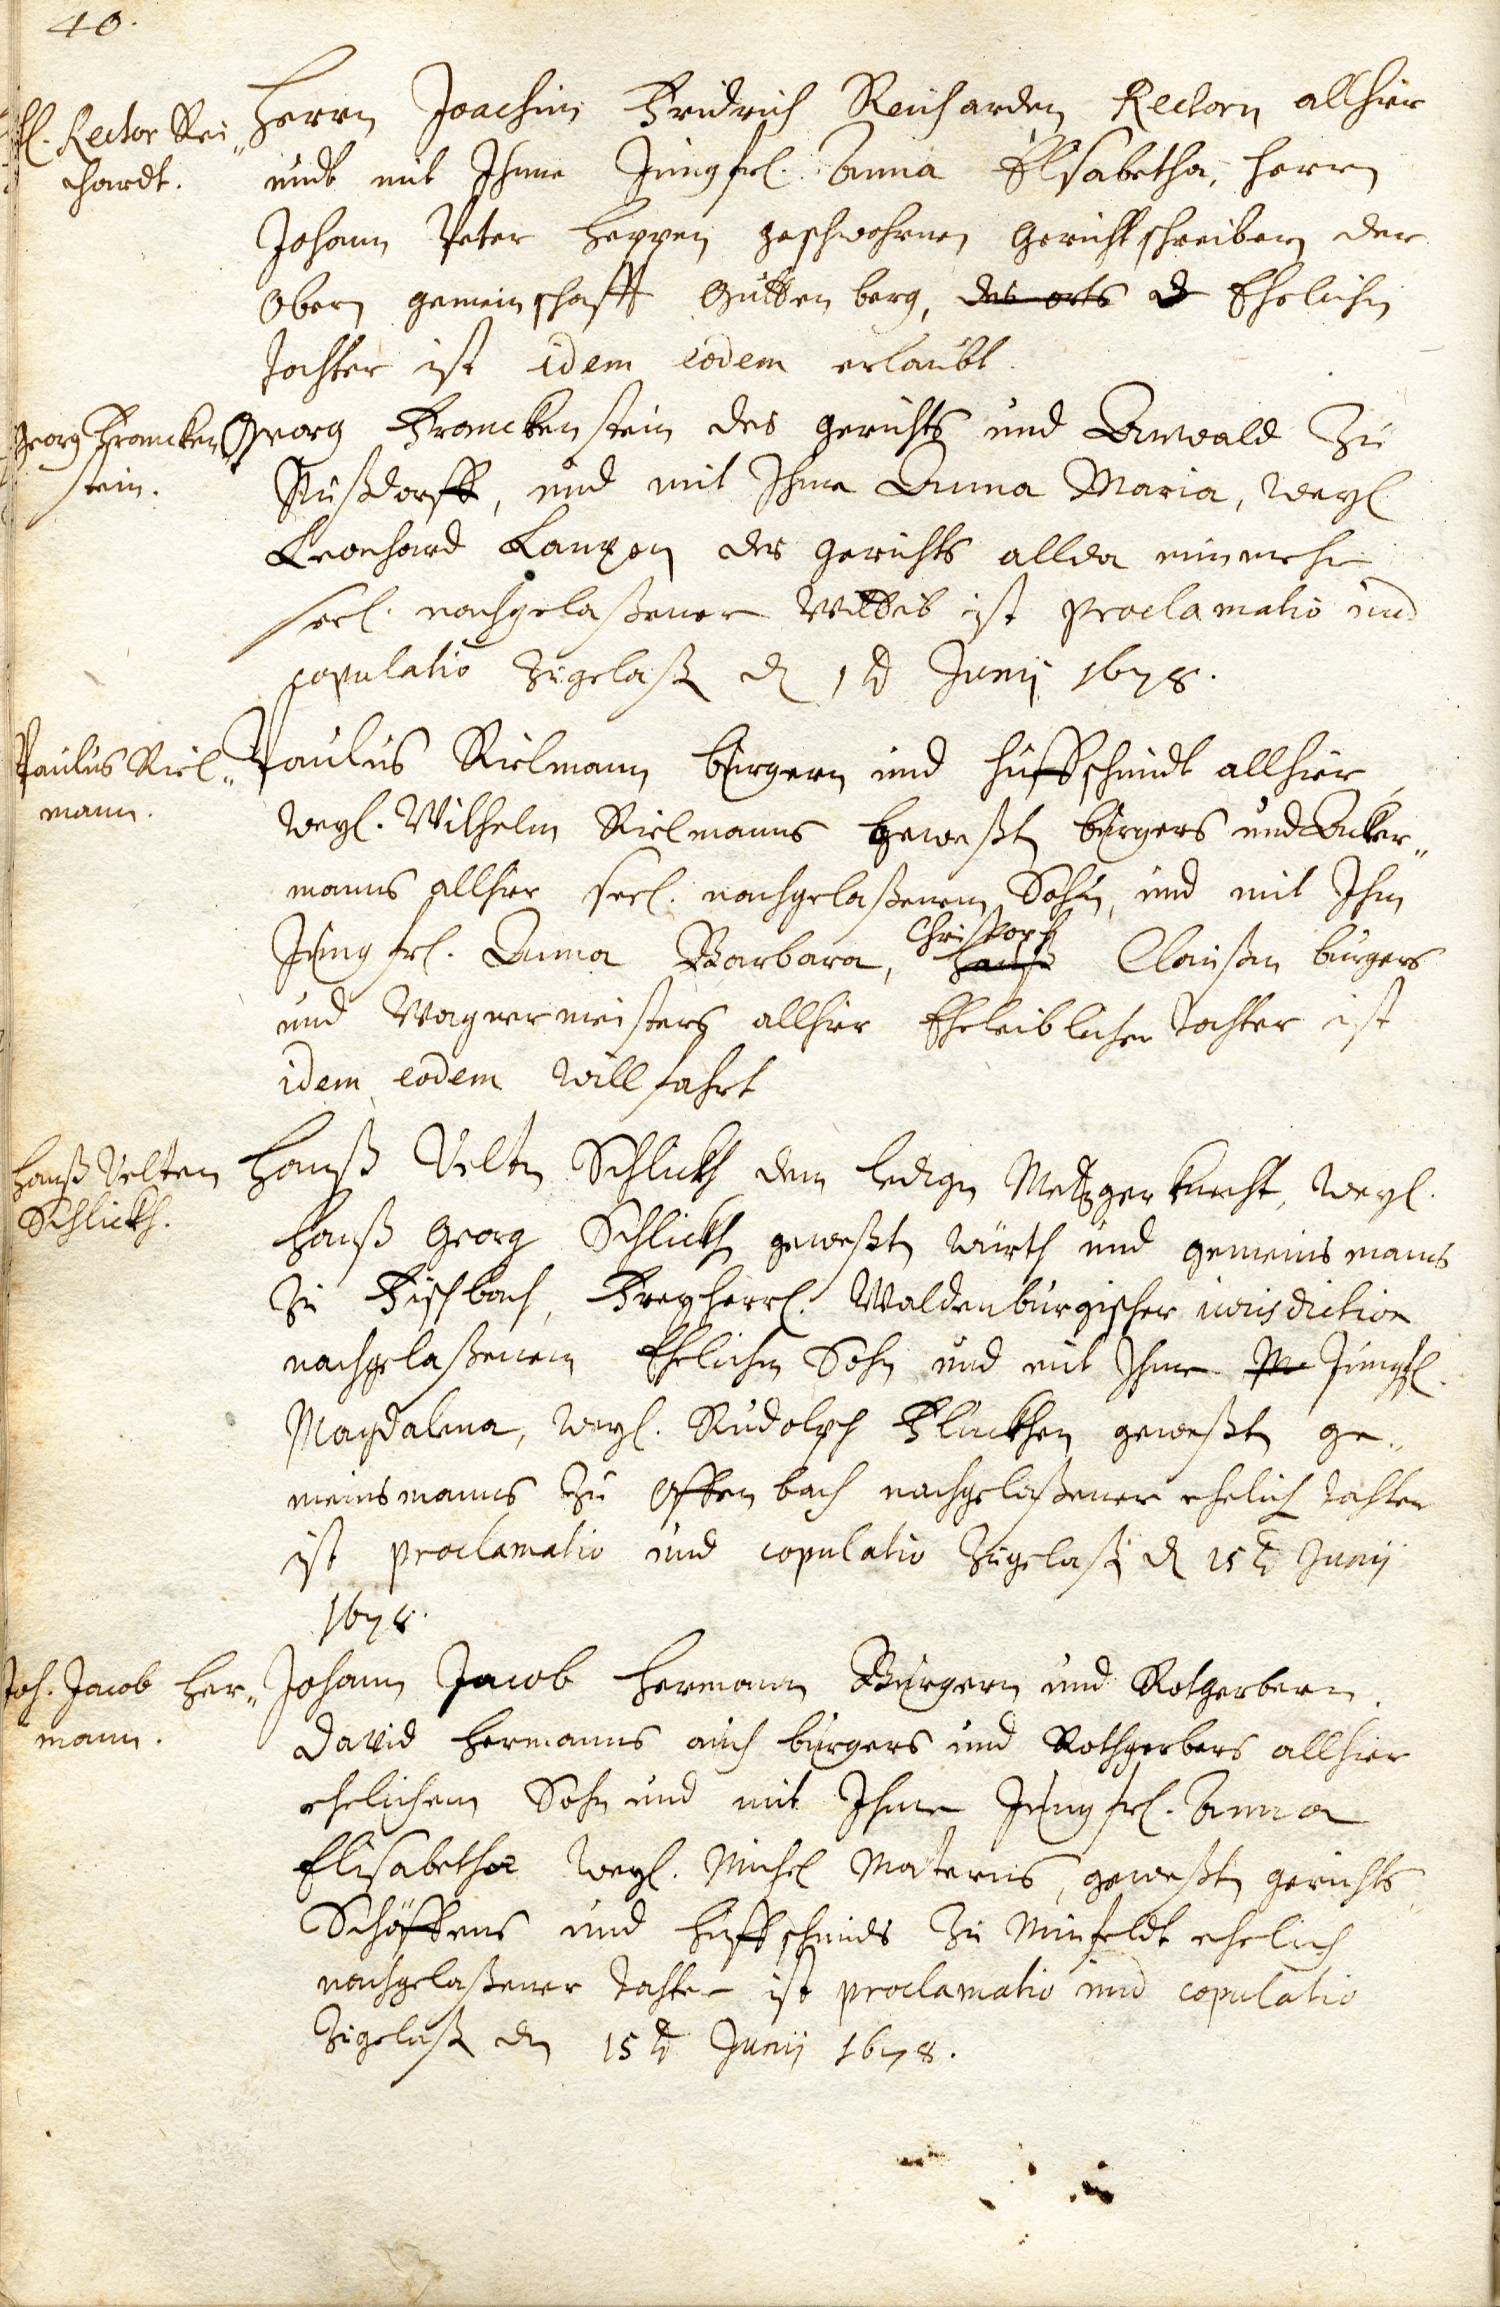 40.
H. Rector Rei„
chardt.
Herrn Joachim Fridrich Reicharden Rectorn allhier
undt mit Ihme Jungfrl. Anna Elsabetha, Herrn
Johann Peter Heppen geschwohrnen Gerichtschreibers der
Obern gemeinschafft Guttenberg, des orts d Ehelichen
Tochter ist idem eodem erlaubt.
Georg Francken„
stein.
Georg Franckenstein des gerichts und Anwald zu
Nußdorff, und mit Ihme Anna Maria, weyl.
Leonhard Langen des gerichts allda nunmehr
seel. nachgelaßener Wittib ist proclamatio und
copulatio zugelaß. d. 1t. Junij 1678.
Paulus Riel„
mann.
Paulus Rielmann burgern und huffschmidt allhier,
weyl. Wilhelm Rielmanns geweßt. burgers und Acker„
manns allhier seel. nachgelaßenem Sohn, und mit Ihm
Jungfrl. Anna Barbara, Christoph Hanß Claußen burgers
und Wagnermeisters allhier Eheleiblicher Tochter ist
idem eodem willfahrt
Hanß Velten
Schlickh.
Hanß Veltn Schlickh dem ledign Metzgerknecht, weyl.
Hanß Georg Schlickh geweßt. würth und gemeinsmanns
zu Fischbach, Freyherrl. Waldenburgischer iurisdiction
nachgelaßenem Ehelichen Sohn und mit Ihme M Jungfl.
Magdalena, weyl. Rudolph Fluckhen geweßt. ge„
meinsmanns zu Offenbach nachgelaßener ehelich. Tochter
ist proclamatio und copulatio zugelaß. d. 15t. Junij
1678.
Joh. Jacob Her„
mann.
Johann Jacob Hermann Burgern und Rotgerbern.
David Hermanns auch burgers und Rothgerbers allhier
ehelichem Sohn und mit Ihme Jungfrl. Anna
Elisabetha weyl. Michel Maternus, geweßt. gerichts„
Schöffens und huffschmids zu Minfeldt ehelich
nachgelaßener Tochter ist proclamatio und copulatio
zugelaß. dn 15t. Junij 1678.